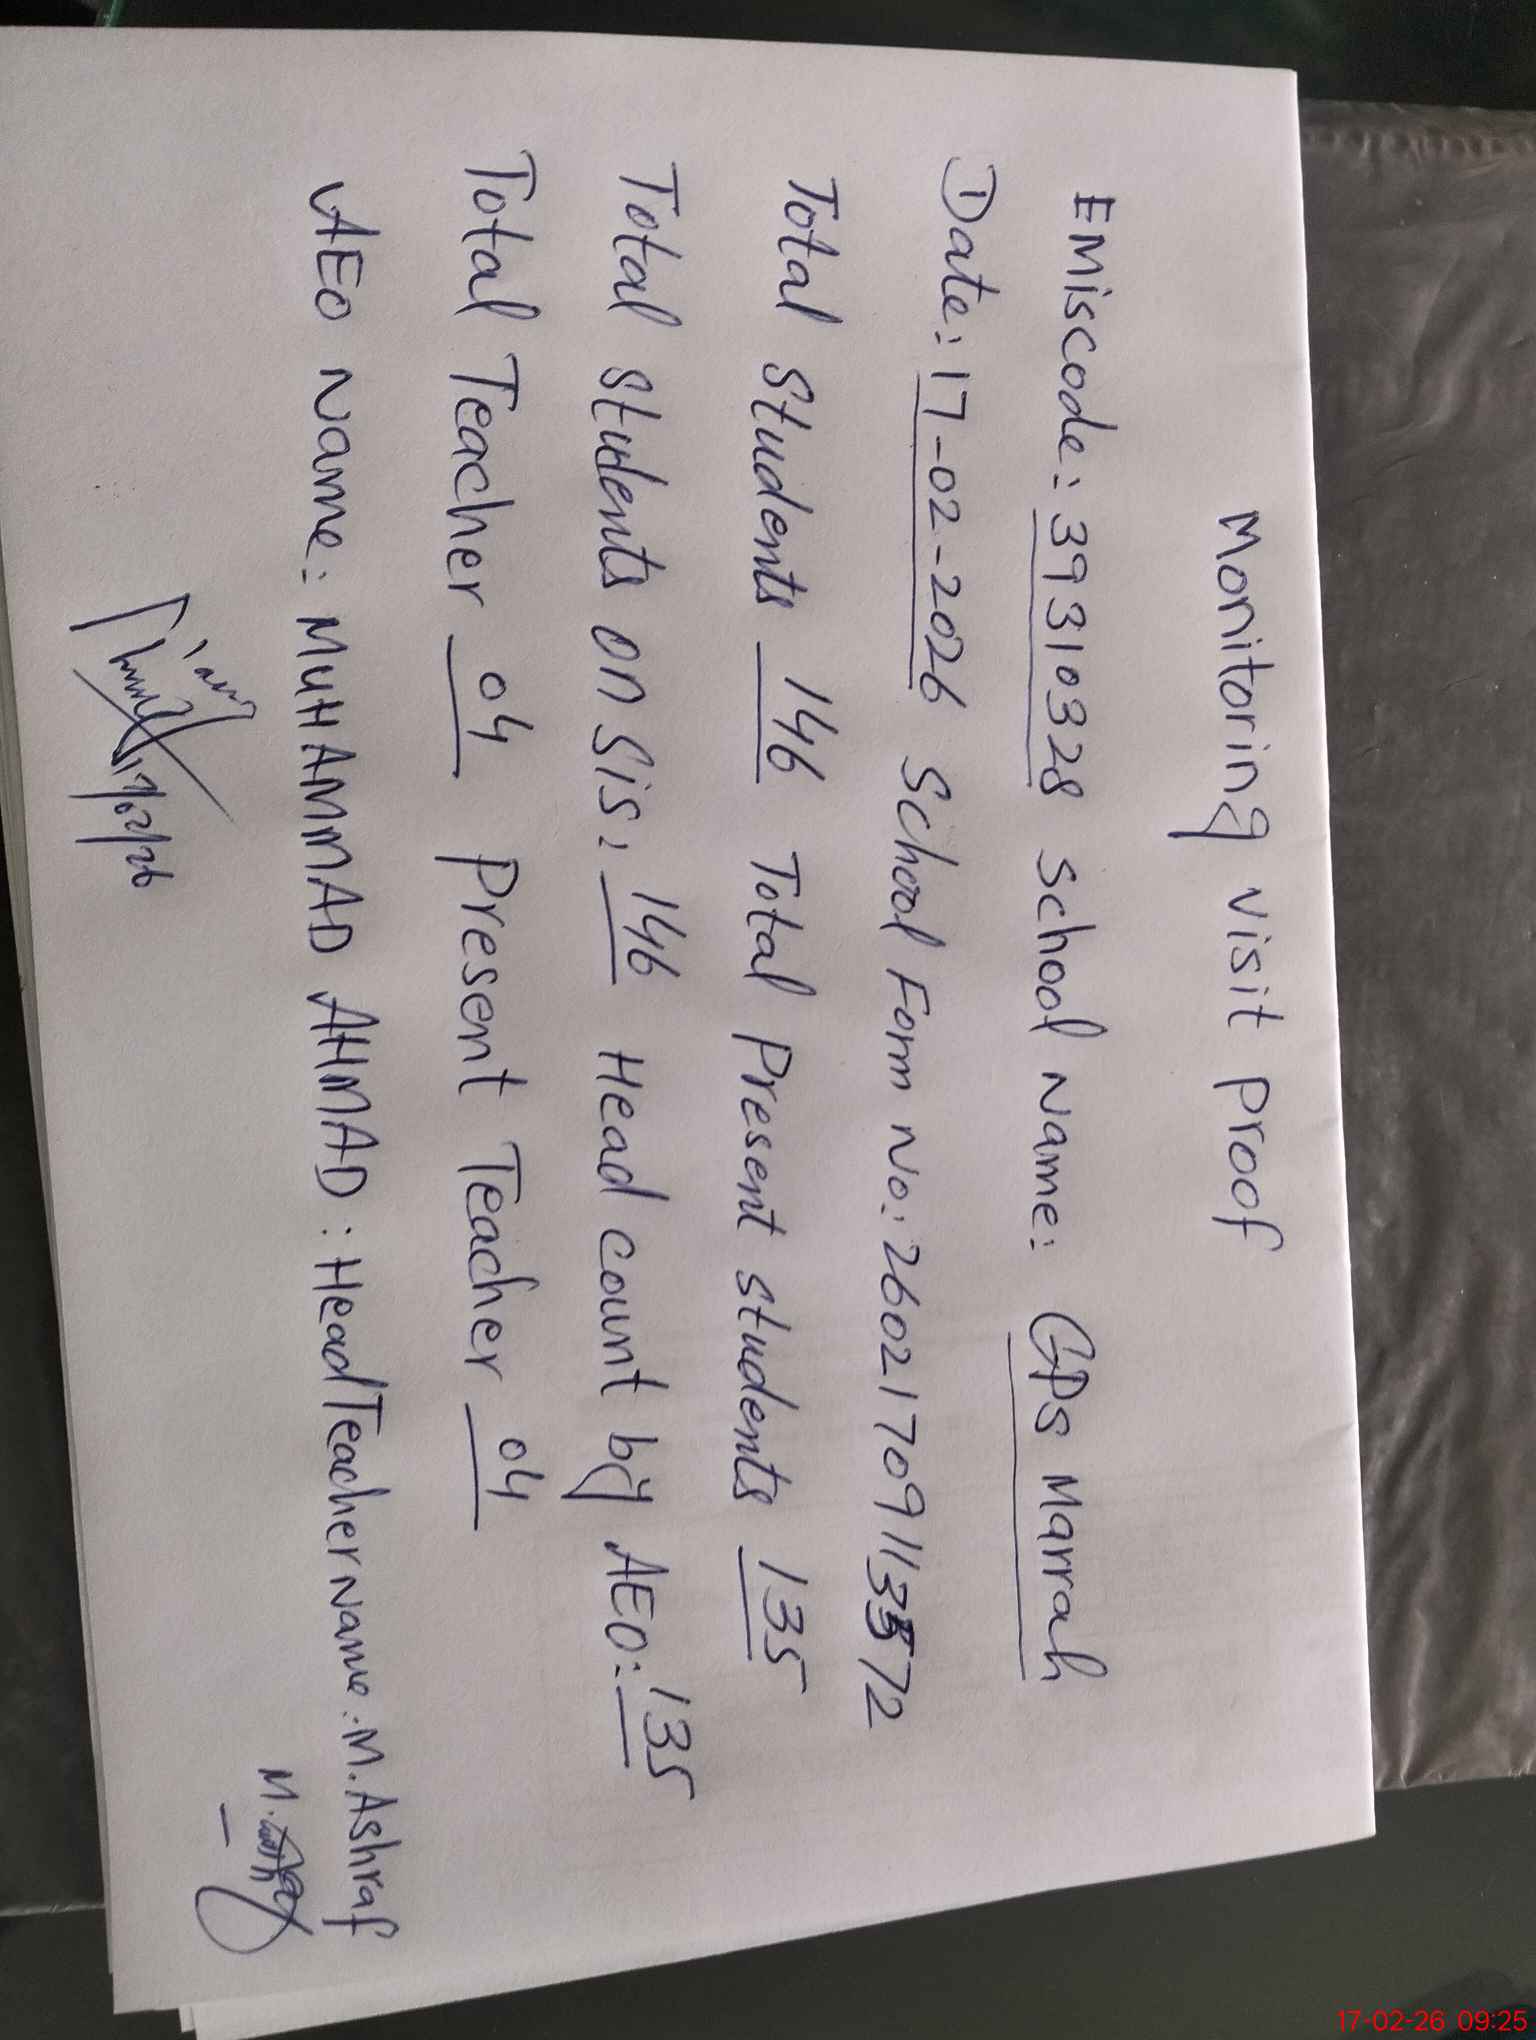 Monitoring visit Proof
EMiscode: 39310328 School Name: GPS Marrah
Date: 17-02-2026 School Form No: 26021709113572
Total Students 146 Total Present students 135
Total students on Sis: 146 Head count by AEO: 135
Total Teacher 04 Present Teacher 04
AEO Name: MUHAMMAD AHMAD : Head Teacher Name: M. Ashraf
M.
17/02/26
17-02-26 09:25